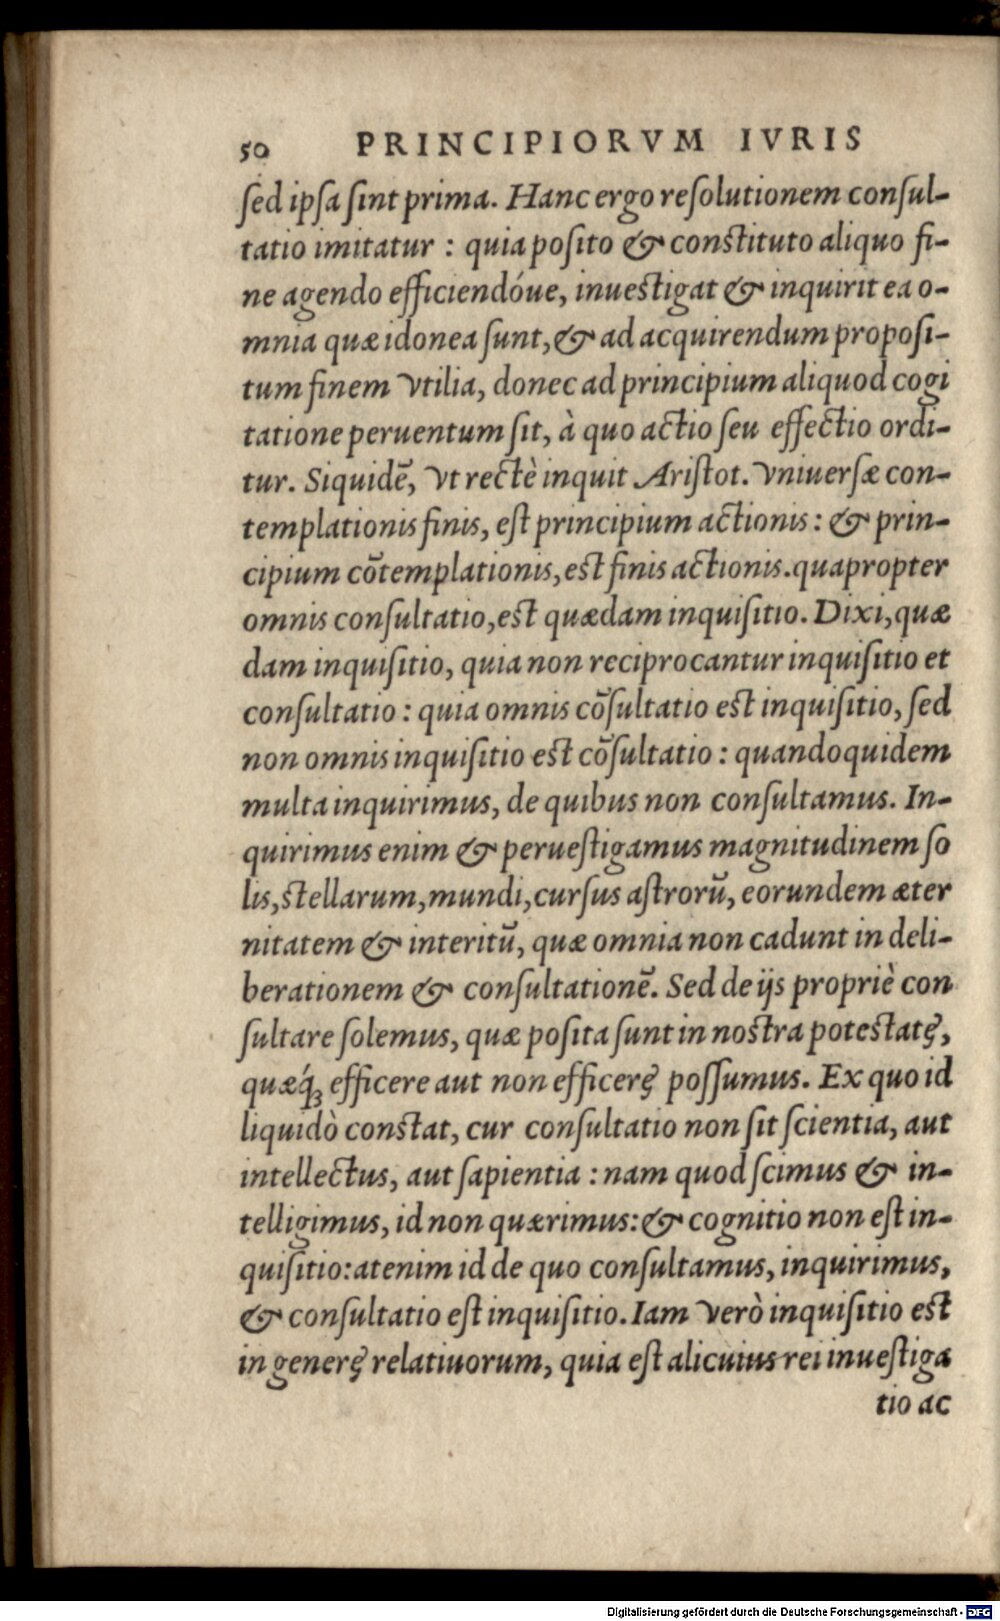 50 PRINCIPIORVM IVRIS
ſed ipſa ſint prima. Hanc ergo reſolutionem conſul-
tatio imitatur : quia poſito & conſtituto aliquo fi-
ne agendo efficiendóue, inueſtigat & inquirit ea o-
mnia quæ idonea ſunt, & ad acquirendum propoſi-
tum finem vtilia, donec ad principium aliquod cogi
tatione peruentum ſit, à quo actio ſeu effectio ordi-
tur. Siquidẽ, vt rectè inquit Ariſtot. vniuerſæ con-
templationis finis, eſt principium actionis : & prin-
cipium cõtemplationis, eſt finis actionis. quapropter
omnis conſultatio, eſt quædam inquiſitio. Dixi, quæ
dam inquiſitio, quia non reciprocantur inquiſitio et
conſultatio : quia omnis cõſultatio eſt inquiſitio, ſed
non omnis inquiſitio eſt cõſultatio : quandoquidem
multa inquirimus, de quibus non conſultamus. In-
quirimus enim & perueſtigamus magnitudinem ſo
lis, ſtellarum, mundi, curſus aſtrorũ, eorundem æter
nitatem & interitũ, quæ omnia non cadunt in deli-
berationem & conſultationẽ. Sed de ijs propriè con
ſultare ſolemus, quæ poſita ſunt in noſtra poteſtatę,
quæq́ꝫ efficere aut non efficerę poſſumus. Ex quo id
liquidò conſtat, cur conſultatio non ſit ſcientia, aut
intellectus, aut ſapientia : nam quod ſcimus & in-
telligimus, id non quærimus: & cognitio non eſt in-
quiſitio: at enim id de quo conſultamus, inquirimus,
& conſultatio eſt inquiſitio. Iam verò inquiſitio eſt
in generę relatiuorum, quia eſt alicuius rei inueſtiga
tio ac
Digitalisierung gefördert durch die Deutsche Forschungsgemeinschaft - DFG